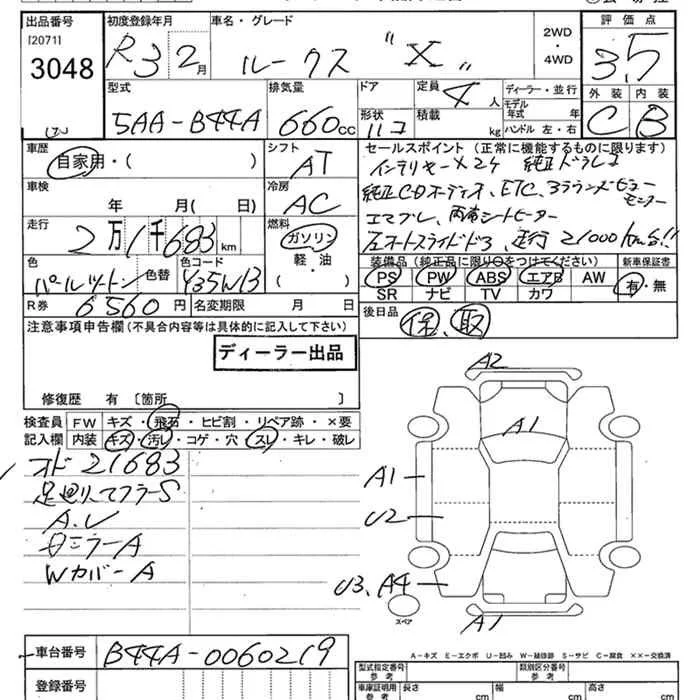 出品番号 初度登録年月 車名・グレード 評価点
[2071]
3048 R3 2月 ルークス "X" 2WD・4WD 3.5
型式 排気量 ドア 定員 ディーラー・並行 外装 内装
5AA-B44A 660cc 4人 モデル年式 年 C B
形状 積載 kg ハンドル 左・右
車歴 シフト セールスポイント(正常に機能するものに限ります)
自家用・( ) AT インテリキーX2ケ 純正ドラレコ
車検 冷房 純正CDオーディオ、ETC、3ラウンドビューモニター
年 月(日) AC エマブレ、両席シートヒーター
走行 燃料 左オートスライドドア、走行21000km台!!
2万1千683km ガソリン・軽油
色 色替 色コード 装備品(純正品に限り○をつけてください) 新車保証書
パールツートン ( ) PS PW ABS エアB AW 有・無
SR ナビ TV カワ
R券 6560円 名変期限 月 日 後日品 保、取
注意事項申告欄(不具合内容等は具体的に記入して下さい)
ディーラー出品
修復歴 有〔箇所 〕
検査員 FW キズ・飛石・ヒビ割・リペア跡・×要
記入欄 内装 キズ・汚レ・コゲ・穴・スレ・キレ・破レ
オド 21683
足廻り、マフラーS
A.U
ミラーA
WカバーA
A2
A1
A1
U2
U3、A4
A1
スペア
A-キズ E-エクボ U-凹み W-補修跡 S-サビ C-腐食 ××-交換済
車台番号 B44A-0060219 型式指定番号 参考 類別区分番号 参考
登録番号 車庫証明用 参考 長さ cm 幅 cm 高さ cm